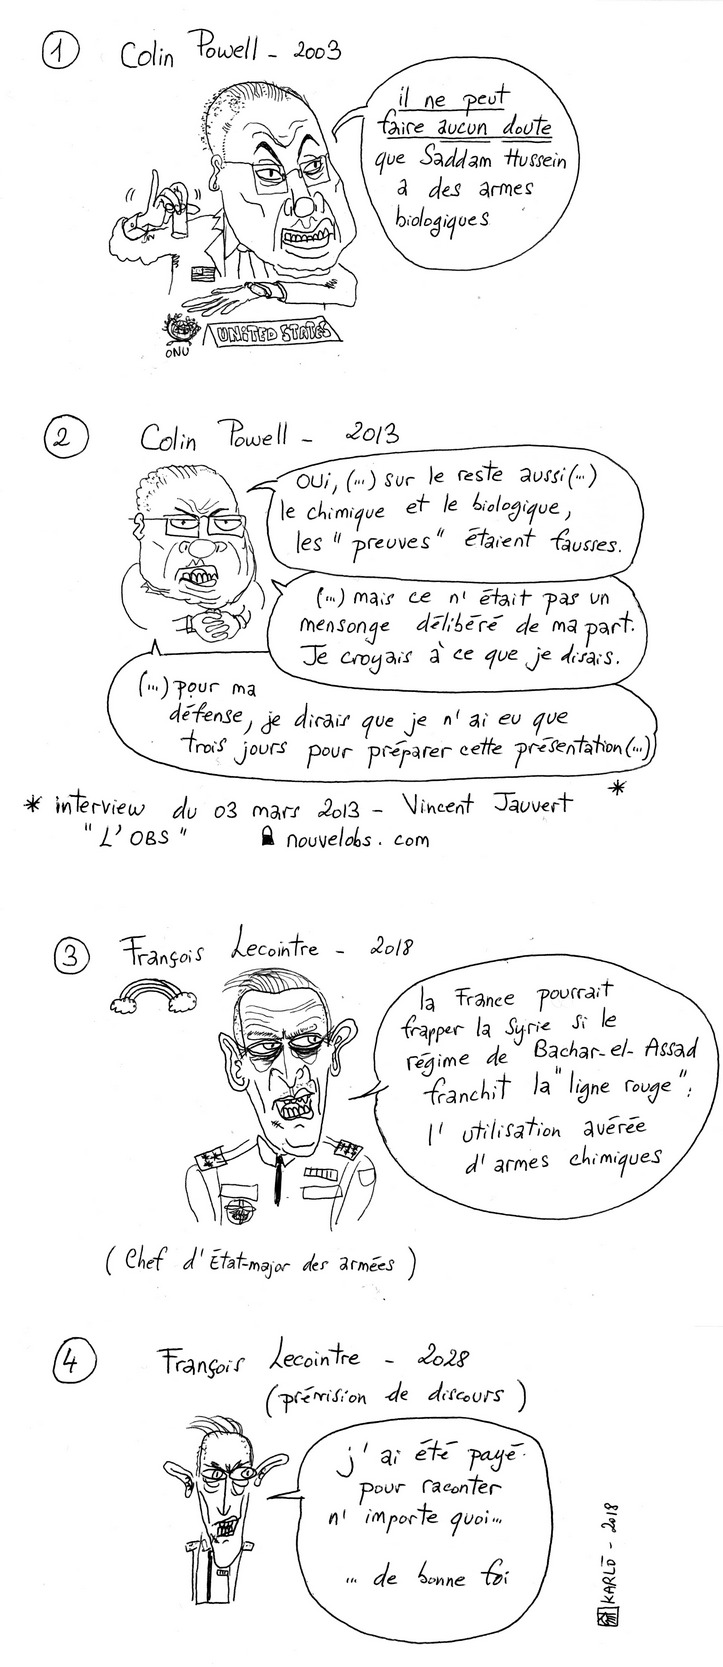 1 Colin Powell - 2003
il ne peut
faire aucun doute
que Saddam Hussein
a des armes
biologiques
ONU
UNITED STATES
2 Colin Powell - 2013
OUi, (...) sur le reste aussi (...)
le chimique et le biologique,
les "preuves" étaient fausses.
(...) mais ce n'était pas un
mensonge délibéré de ma part.
Je croyais à ce que je disais.
(...) pour ma
défense, je dirais que je n'ai eu que
trois jours pour préparer cette présentation (...)
*
* interview du 03 mars 2013 - Vincent Jauvert
"L'OBS" nouvelobs.com
3 François Lecointre - 2018
la France pourrait
frapper la Syrie si le
régime de Bachar-el-Assad
franchit la "ligne rouge":
l'utilisation avérée
d'armes chimiques
(Chef d'État-major des armées)
4 François Lecointre - 2028
(prévision de discours)
j'ai été payé
pour raconter
n'importe quoi...
... de bonne foi
KARLO - 2018